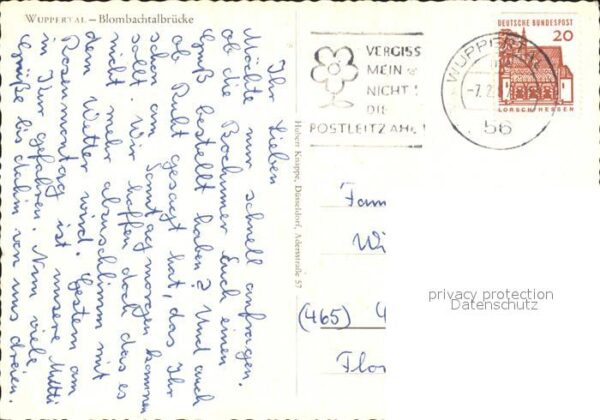 WUPPERTAL – Blombachtalbrücke
Ihr Lieben
Möchte nur schnell anfragen,
ob die Bochumer Euch einen
Gruß bestellt haben? Und auch
ob gesagt hat, das Ihr
schon am Sonntagmorgen kommen
sollt. Wir hoffen doch das es
nicht mehr abzuschlimm mit
dem Wetter wird. Gestern am
Rosenmontag ist unsere Mutti
in Kur gefahren. Nun viele
Grüße bis dahin von uns dreien.
Hubert Knappe, Düsseldorf, Adersstraße 57
VERGISS
MEIN
NICHT!
DIE
POSTLEITZAHL!
WUPPERTAL
-7.2.
56
DEUTSCHE BUNDESPOST
20
LORSCH HESSEN
Fam
Wi
(465)
Flor
privacy protection
Datenschutz